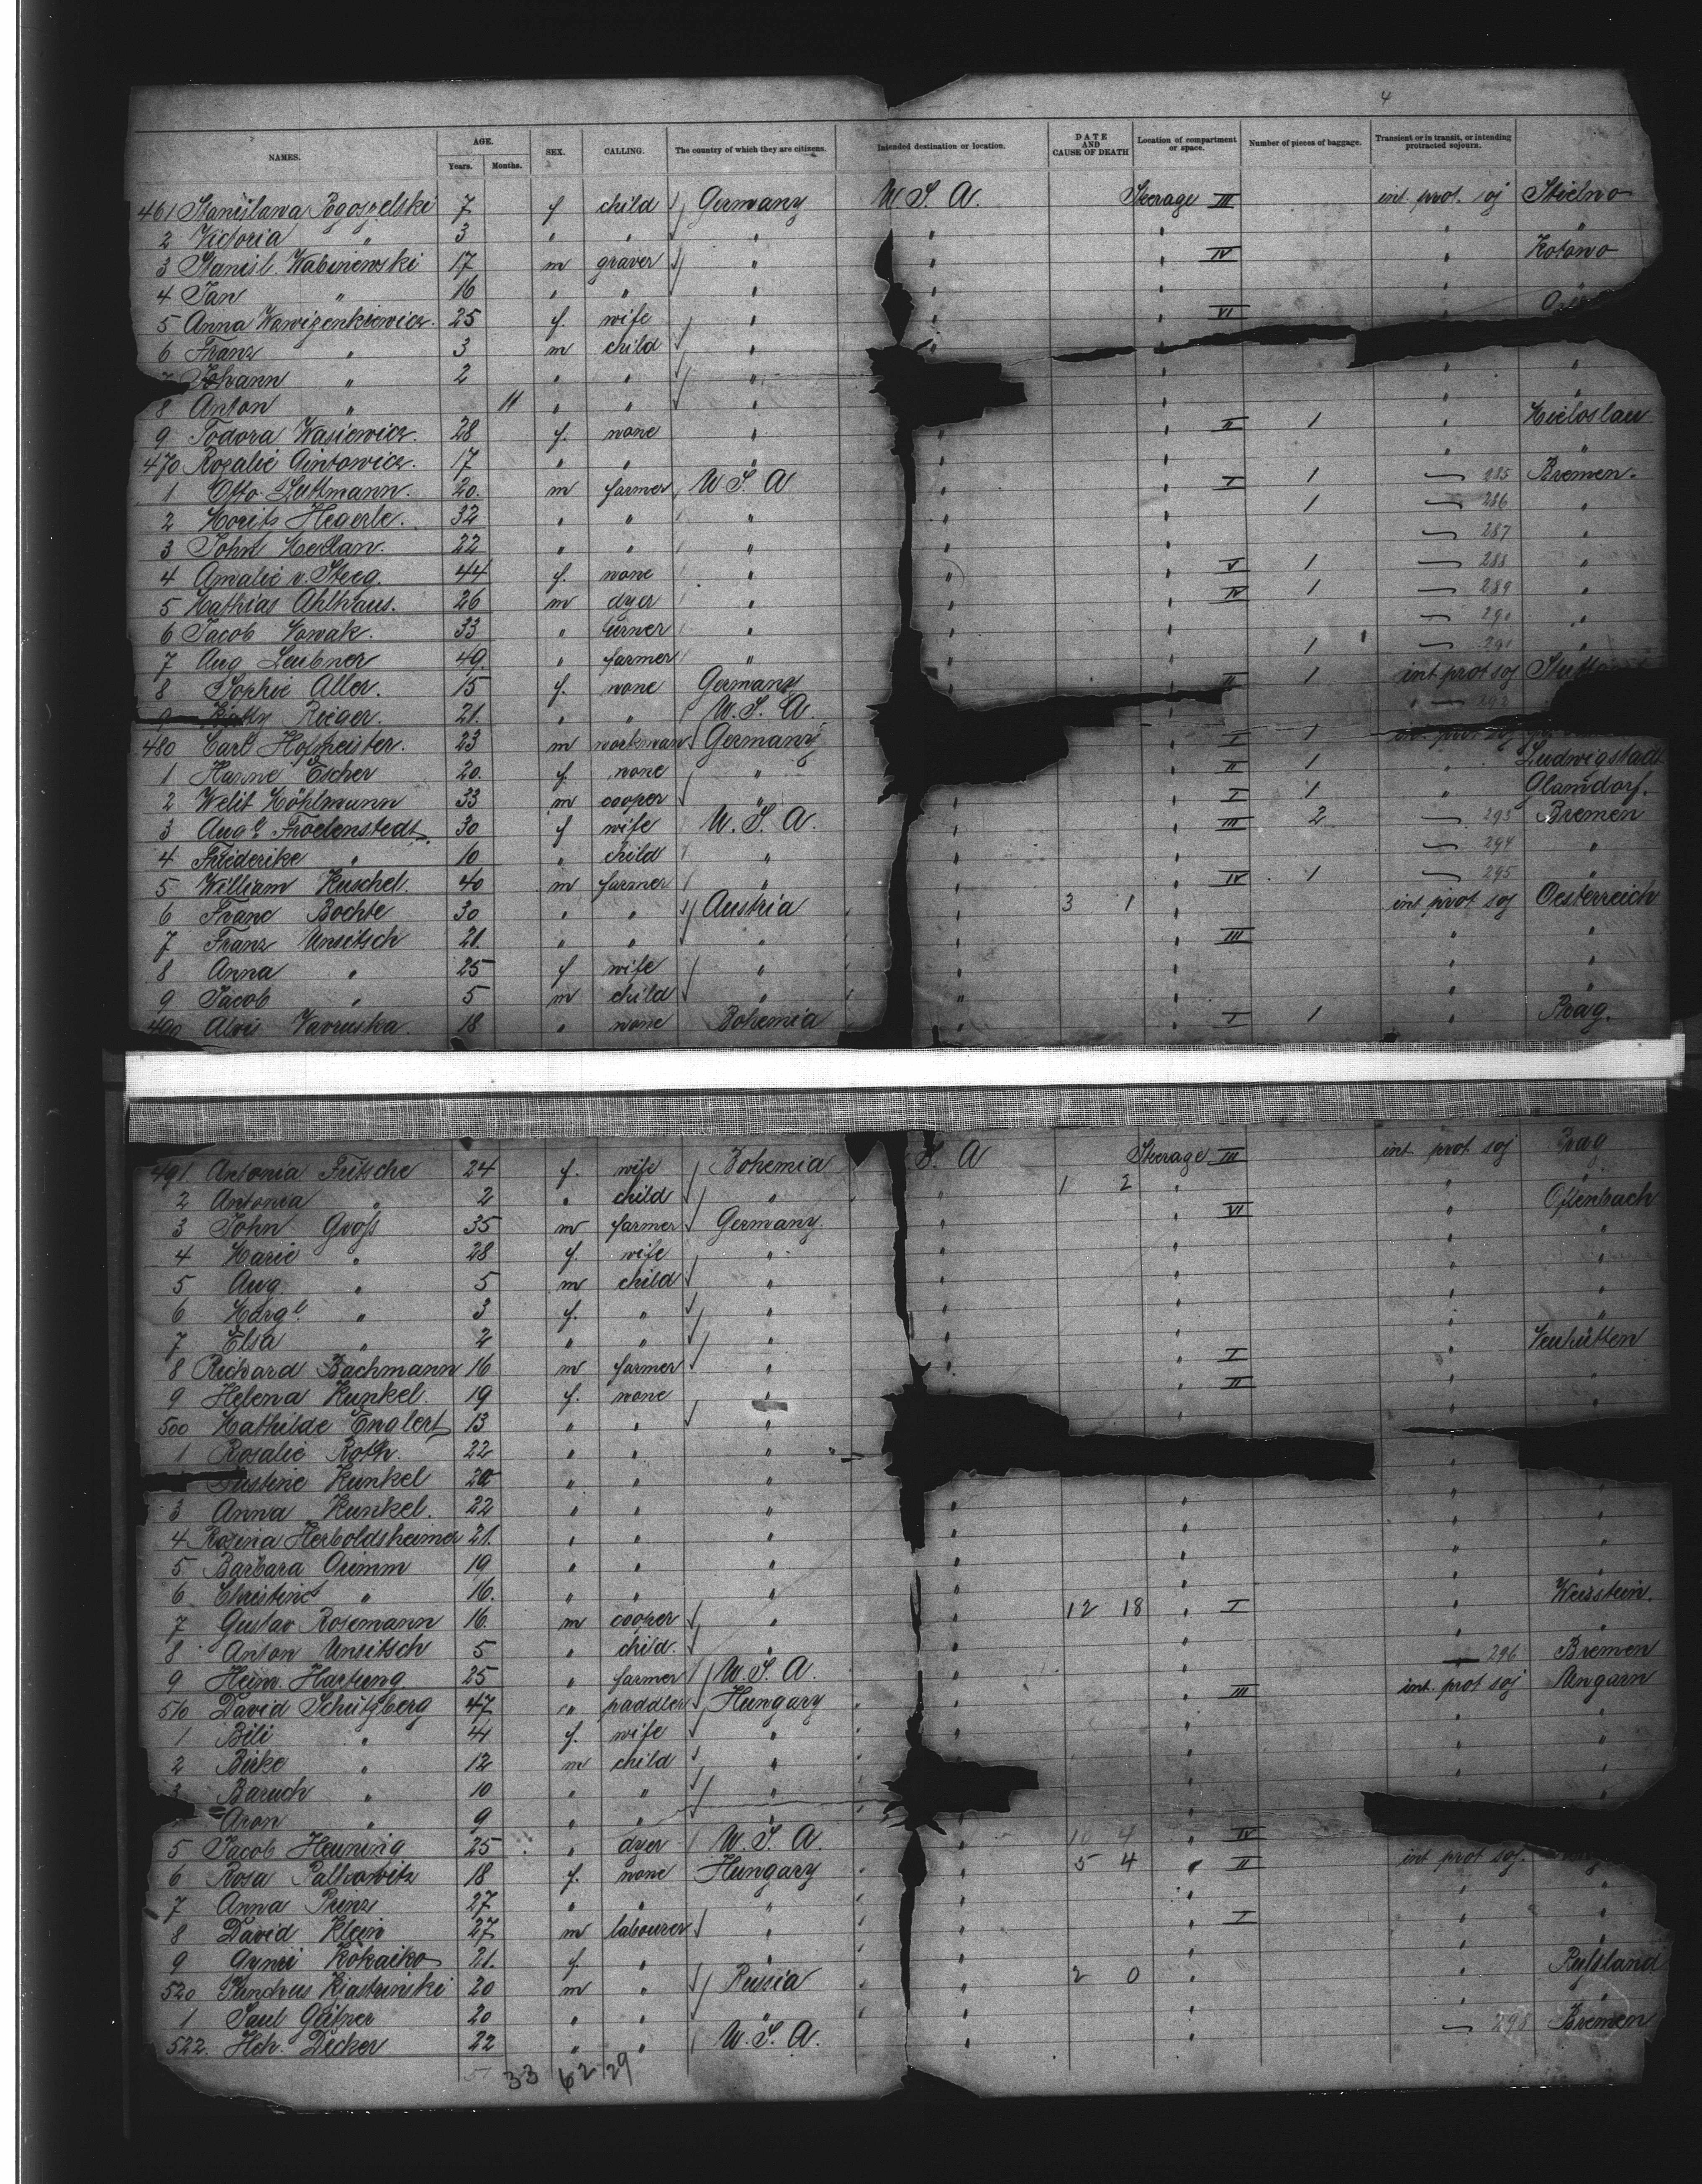 4
NAMES. AGE. Years. Months. SEX. CALLING. The country of which they are citizens. Intended destination or location. DATE AND CAUSE OF DEATH Location of compartment or space. Number of pieces of baggage. Transient or in transit, or intending protracted sojourn.
461 Stanislawa Pogorzelski 7 f child Germany U S A. Steerage III int. prot. soj Stielno
2 Victoria " 3 " " " " " " "
3 Stanisl. Wabinewski 17 m graver " " " IV " Kotowo
4 Jan " 16 " " " " " "
5 Anna Wawizenkiewicz. 25 f. wife " " " VI "
6 Franz " 3 m child " "
7 Johann " 2 " " " " " "
8 Anton " 11 " " " " " "
9 Todora Wasiewicz. 28 f. none " " " II 1 " Miloslau
470 Rosalie Gintowicz. 17 " " " " " " "
1 Otto Luttmann. 20. m farmer U S A " " I 1 285 Bremen.
2 Morits Hegerle. 32 " " " " " 1 286 "
3 John Mellan. 22 " " " " " 287 "
4 Amalie v. Steeg. 44 f. none " " " V 1 288 "
5 Mathias Ahlhaus. 26 m dyer " " " IV 1 289 "
6 Jacob Nowak. 33 " turner " " " 290 "
7 Aug Leubner 49. " farmer " " " 1 291 "
8 Sophie Aller. 15 f. none Germany II 1 int prot soj
9 Rieger. 21. " " U. S. A. " 292
480 Carl Hofmeister. 23 m workman Germany " I 1 int. prot soj
1 Hanne Escher 20. f. none " " II 1 " Ludwigstadt
2 Welit Köhlmann 33 m cooper " " " I 1 " Glandorf.
3 Auge Froelenstedt. 30 f wife U. S. A. " " III 2 293 Bremen
4 Friederike " 10 " child " " " 294 "
5 William Kuschel. 40 m farmer " " " IV 1 295 "
6 Franc Bochte 30 " " Austria " 3 1 " int prot soj Oesterreich
7 Franz Unsitsch 21. " " " " " III " "
8 Anna " 25 f wife " " " " "
9 Jacob " 5 m child " " " " "
490 Alois Vavruska. 18 " none Bohemia " " I 1 " Prag.
491 Antonia Fritsche 24 f. wife Bohemia S. A Steerage III int. prot soj Prag
2 Antonia " 2 " child " " 1 2 " " "
3 John Groß 35 m farmer Germany " " VI " Offenbach
4 Marie " 28 f. wife " " " " "
5 Aug. " 5 m child " " " " "
6 Marge " 3 f. " " " " " "
7 Elsa " 2 " " " " " " "
8 Richard Bachmann 16 m farmer " " " I " Neuhütten
9 Helena Kunkel. 19 f. none " " II " "
500 Mathilde Englert 13 " " " " " "
1 Rosalie Roth. 22 " " " "
Justine Kunkel 20 " " " "
3 Anna Kunkel. 22 " " " " " " "
4 Rosina Herboldsheimer 21. " " " " " " "
5 Barbara Grimm 19 " " " " " " "
6 Christine " 16. " " " " " " "
7 Gustav Rosemann 16. m cooper " " 12 18 " I " Weisstein.
8 Anton Unsitsch 5 " child. " " " " "
9 Heinr. Hartung 25 " farmer U. S. A. " " 296 Bremen
510 David Schützberg 47 " paddler Hungary " " III int. prot soj Ungarn
1 Bili " 41 f. wife " " " " "
2 Birke " 12 m child " " " " "
3 Baruch " 10 " " " " " "
Aron " 9 " " " " "
5 Jacob Henning 25 " dyer U. S. A. " 10 4 " IV
6 Rosa Palkowitz 18 f. none Hungary " 5 4 " II int prot soj.
7 Anna Prinz 27 " " " " " " "
8 David Klein 27 m labourer " " " I " "
9 Kokaiko 21. f. " " " " " "
520 Kjastrinski 20 m " Russia " 2 0 " " Rußland
1 Paul Geifner 20 " " " " " " "
522. Hch. Decker 22 " " U. S. A. " " 298 Bremen
33 62 29